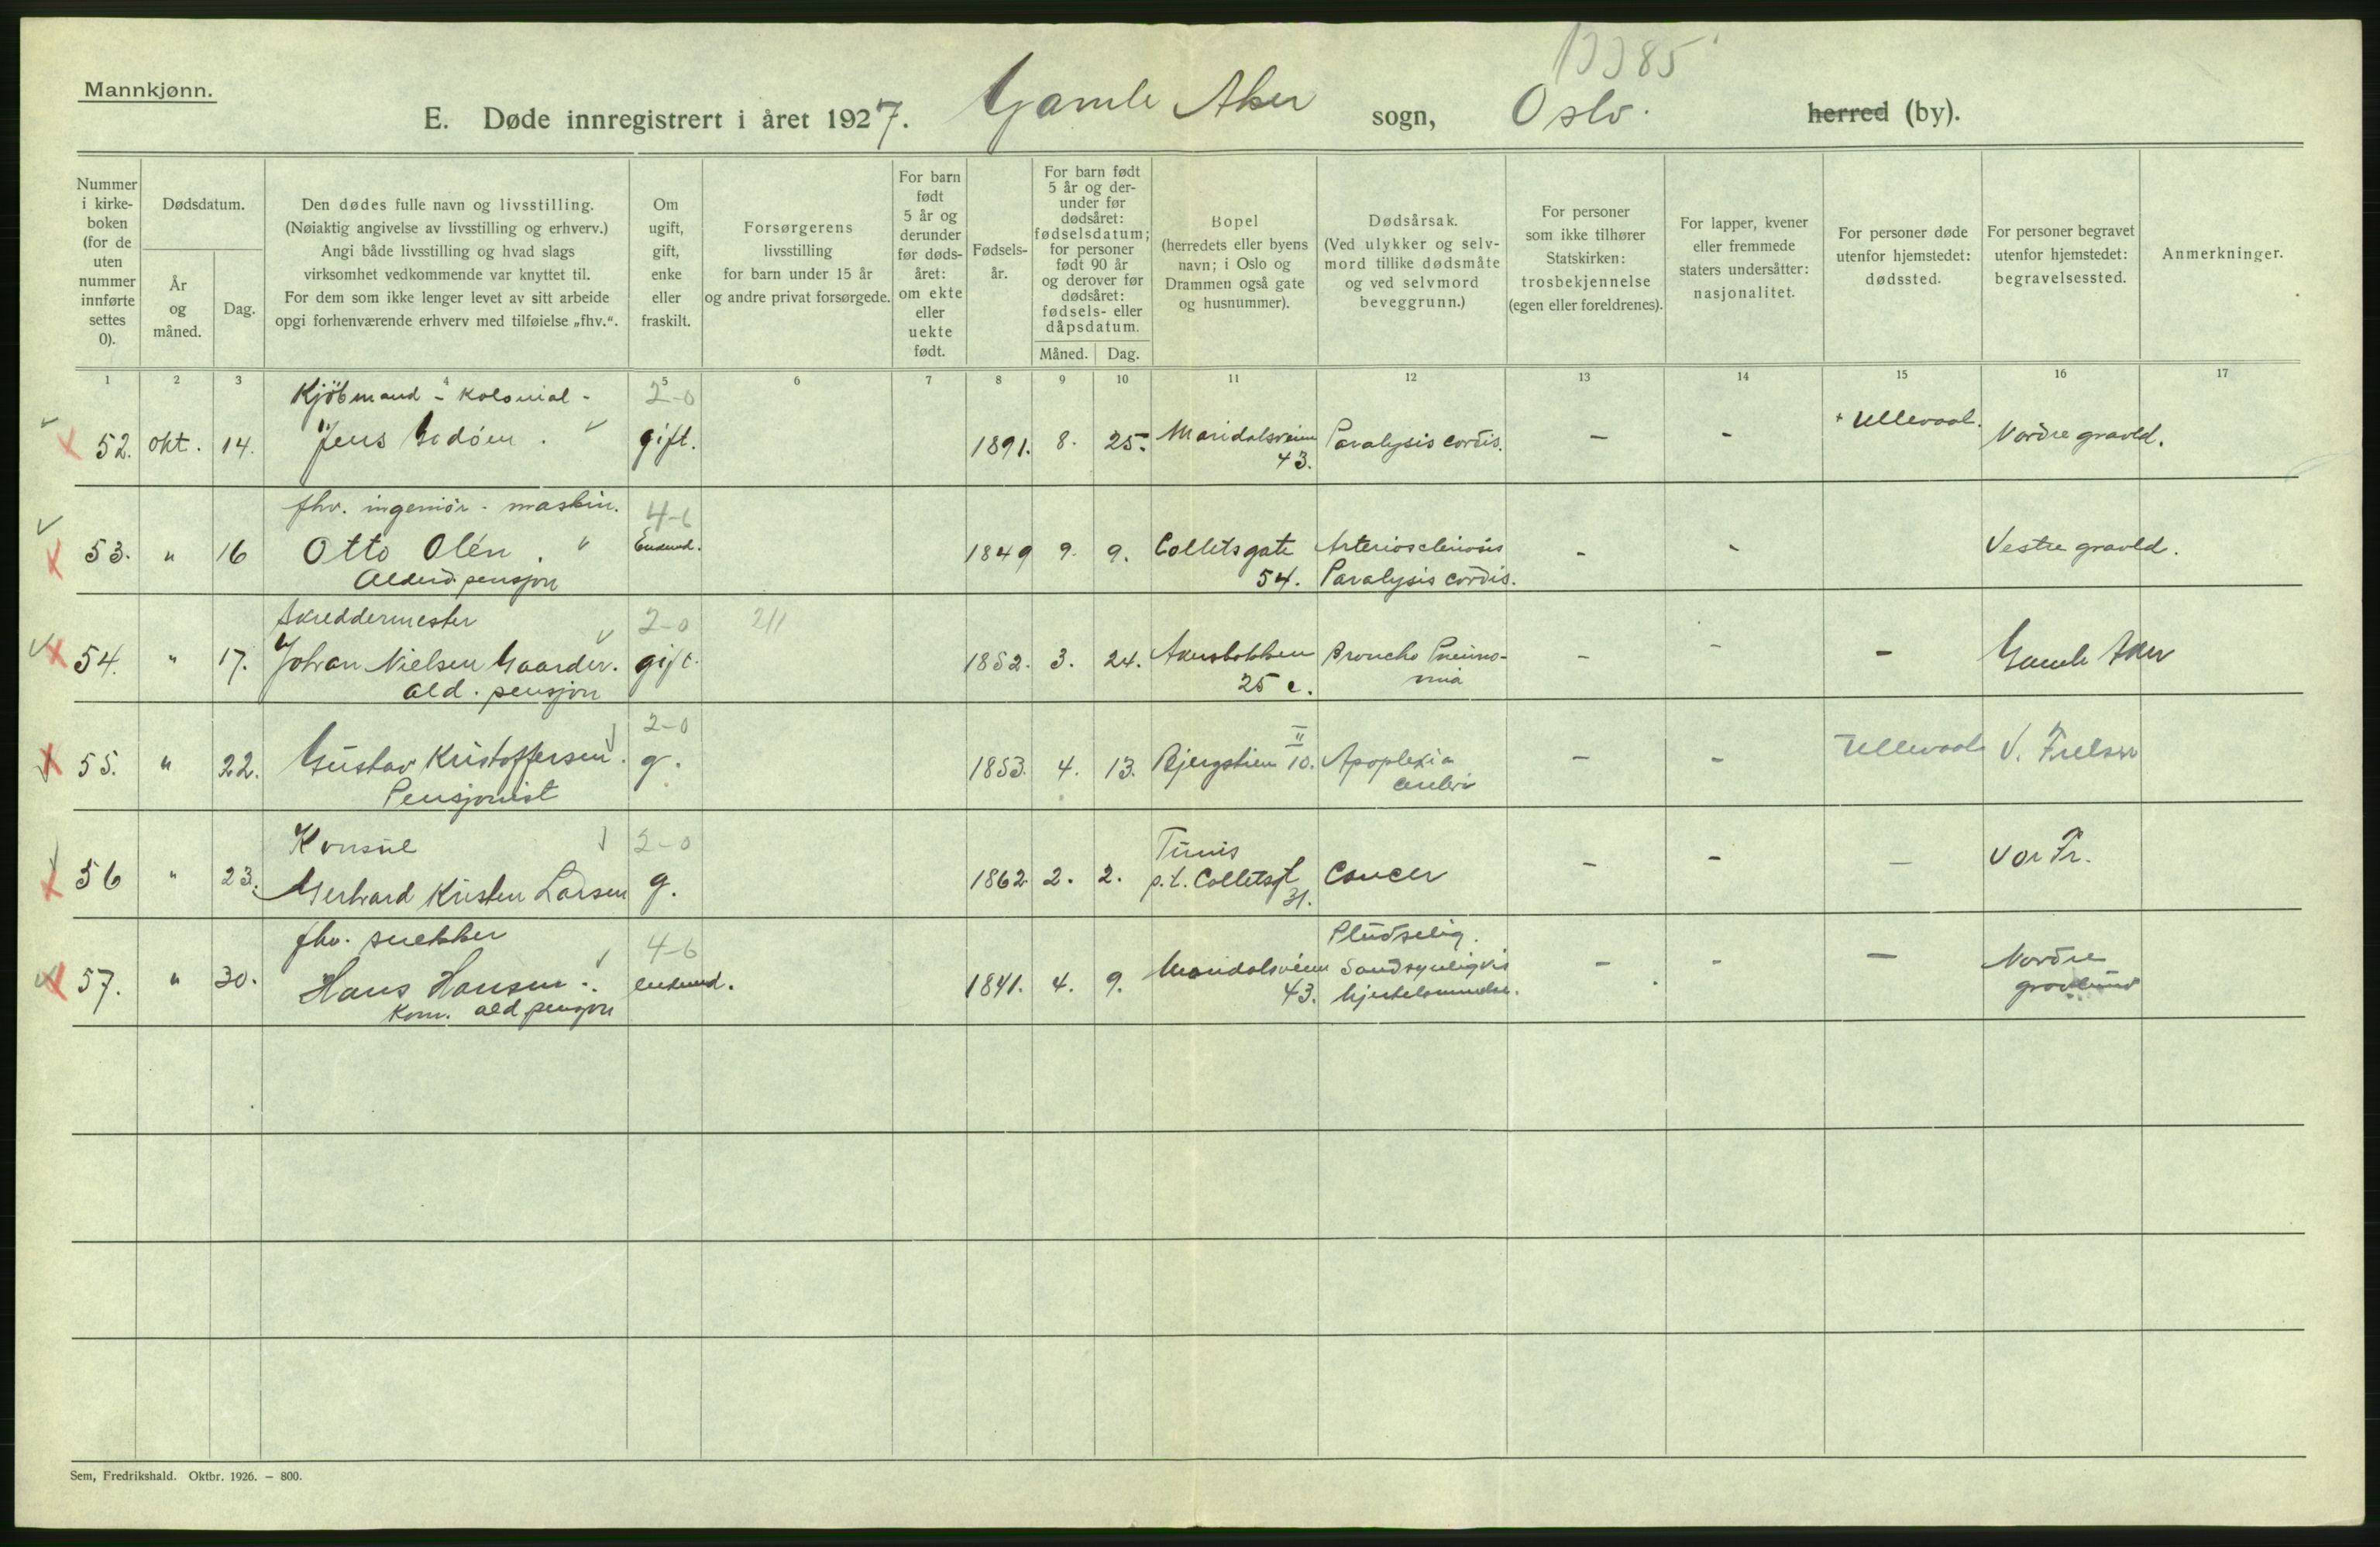 Mannkjønn.
E. Døde innregistrert i året 1927. Gamle Aker sogn, Oslo. herred (by).
Nummer i kirke- boken (for de uten nummer innførte settes 0).
Dødsdatum.
År og måned.
Dag.
Den dødes fulle navn og livsstilling.
(Nøiaktig angivelse av livsstilling og erhverv.)
Angi både livsstilling og hvad slags
virksomhet vedkommende var knyttet til.
For dem som ikke lenger levet av sitt arbeide
opgi forhenværende erhverv med tilføielse „fhv.“.
Om ugift, gift, enke eller fraskilt.
Forsørgerens
livsstilling
for barn under 15 år
og andre privat forsørgede.
For barn født 5 år og derunder før døds- året: om ekte eller uekte født.
Fødsels- år.
For barn født 5 år og der- under før dødsåret: fødselsdatum; for personer født 90 år og derover før dødsåret: fødsels- eller dåpsdatum.
Måned.
Dag.
Bopel
(herredets eller byens
navn; i Oslo og
Drammen også gate
og husnummer).
Dødsårsak.
(Ved ulykker og selv-
mord tillike dødsmåte
og ved selvmord
beveggrunn.)
For personer
som ikke tilhører
Statskirken:
trosbekjennelse
(egen eller foreldrenes).
For lapper, kvener
eller fremmede
staters undersåtter:
nasjonalitet.
For personer døde
utenfor hjemstedet:
dødssted.
For personer begravet
utenfor hjemstedet:
begravelsessted.
Anmerkninger.
1 2 3 4 5 6 7 8 9 10 11 12 13 14 15 16 17
Kjöbmand - Kolonial - 2-0
52. Okt. 14. Jens gift. 1891. 8. 25. Maridalsveien Paralysis cordis. - - + Ullevaal. Nordre gravld.
43.
fhv. ingeniør - maskin. 4-6
53. " 16 Otto Olén. " Enkemd. 1849 9. 9. Colletsgate Arteriosclerosis - - Vestre gravld.
Alderd. pensjon 54. Paralysis cordis.
Skreddermester 2-0 211
54. " 17. Johan Nielsen Gaarder. gift. 1852. 3. 24. Akersbakken Broncho Pneumo- - - - Gamle Aker
ald. pensjon 25 c. nia
2-0 II
55. " 22. Gustav Kristoffersen. g. 1853. 4. 13. Bjergstien 10. Apoplexia - - Ullevaal V. Frelser
Pensjonist cerebri
Konsul 2-0 Tunis
56 " 23. Gerhard Kristen Larsen g. 1862 2. 2. p.t. Colletsgt Cancer - - - Vor Fr.
31.
fhv. snekker 4-6 Pludselig.
57. " 30. Hans Hansen. enkemd. 1841. 4. 9. Maridalsveien Sandsynligvis - - - Nordre
Kom. ald. pensjon 43. hjertelammelse. gravlund
Sem, Fredrikshald. Oktbr. 1926. — 800.